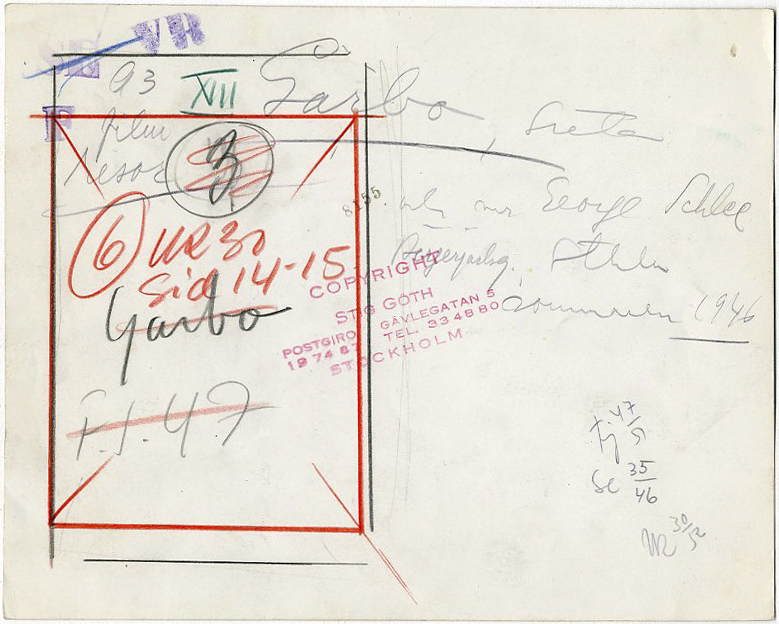 VR
SE
93
XVII
Garbo, Greta
F
film
3
8155
och mr George Schlee
6 VR 30
Sid 14-15
Sthlm
sommaren 1946
Garbo
COPYRIGHT
STIG GÖTH
GÄVLEGATAN 5
POSTGIRO TEL. 33 48 80
19 74 87
STOCKHOLM
F.J. 47
FJ 47/51
Se 35/46
VR 30/52